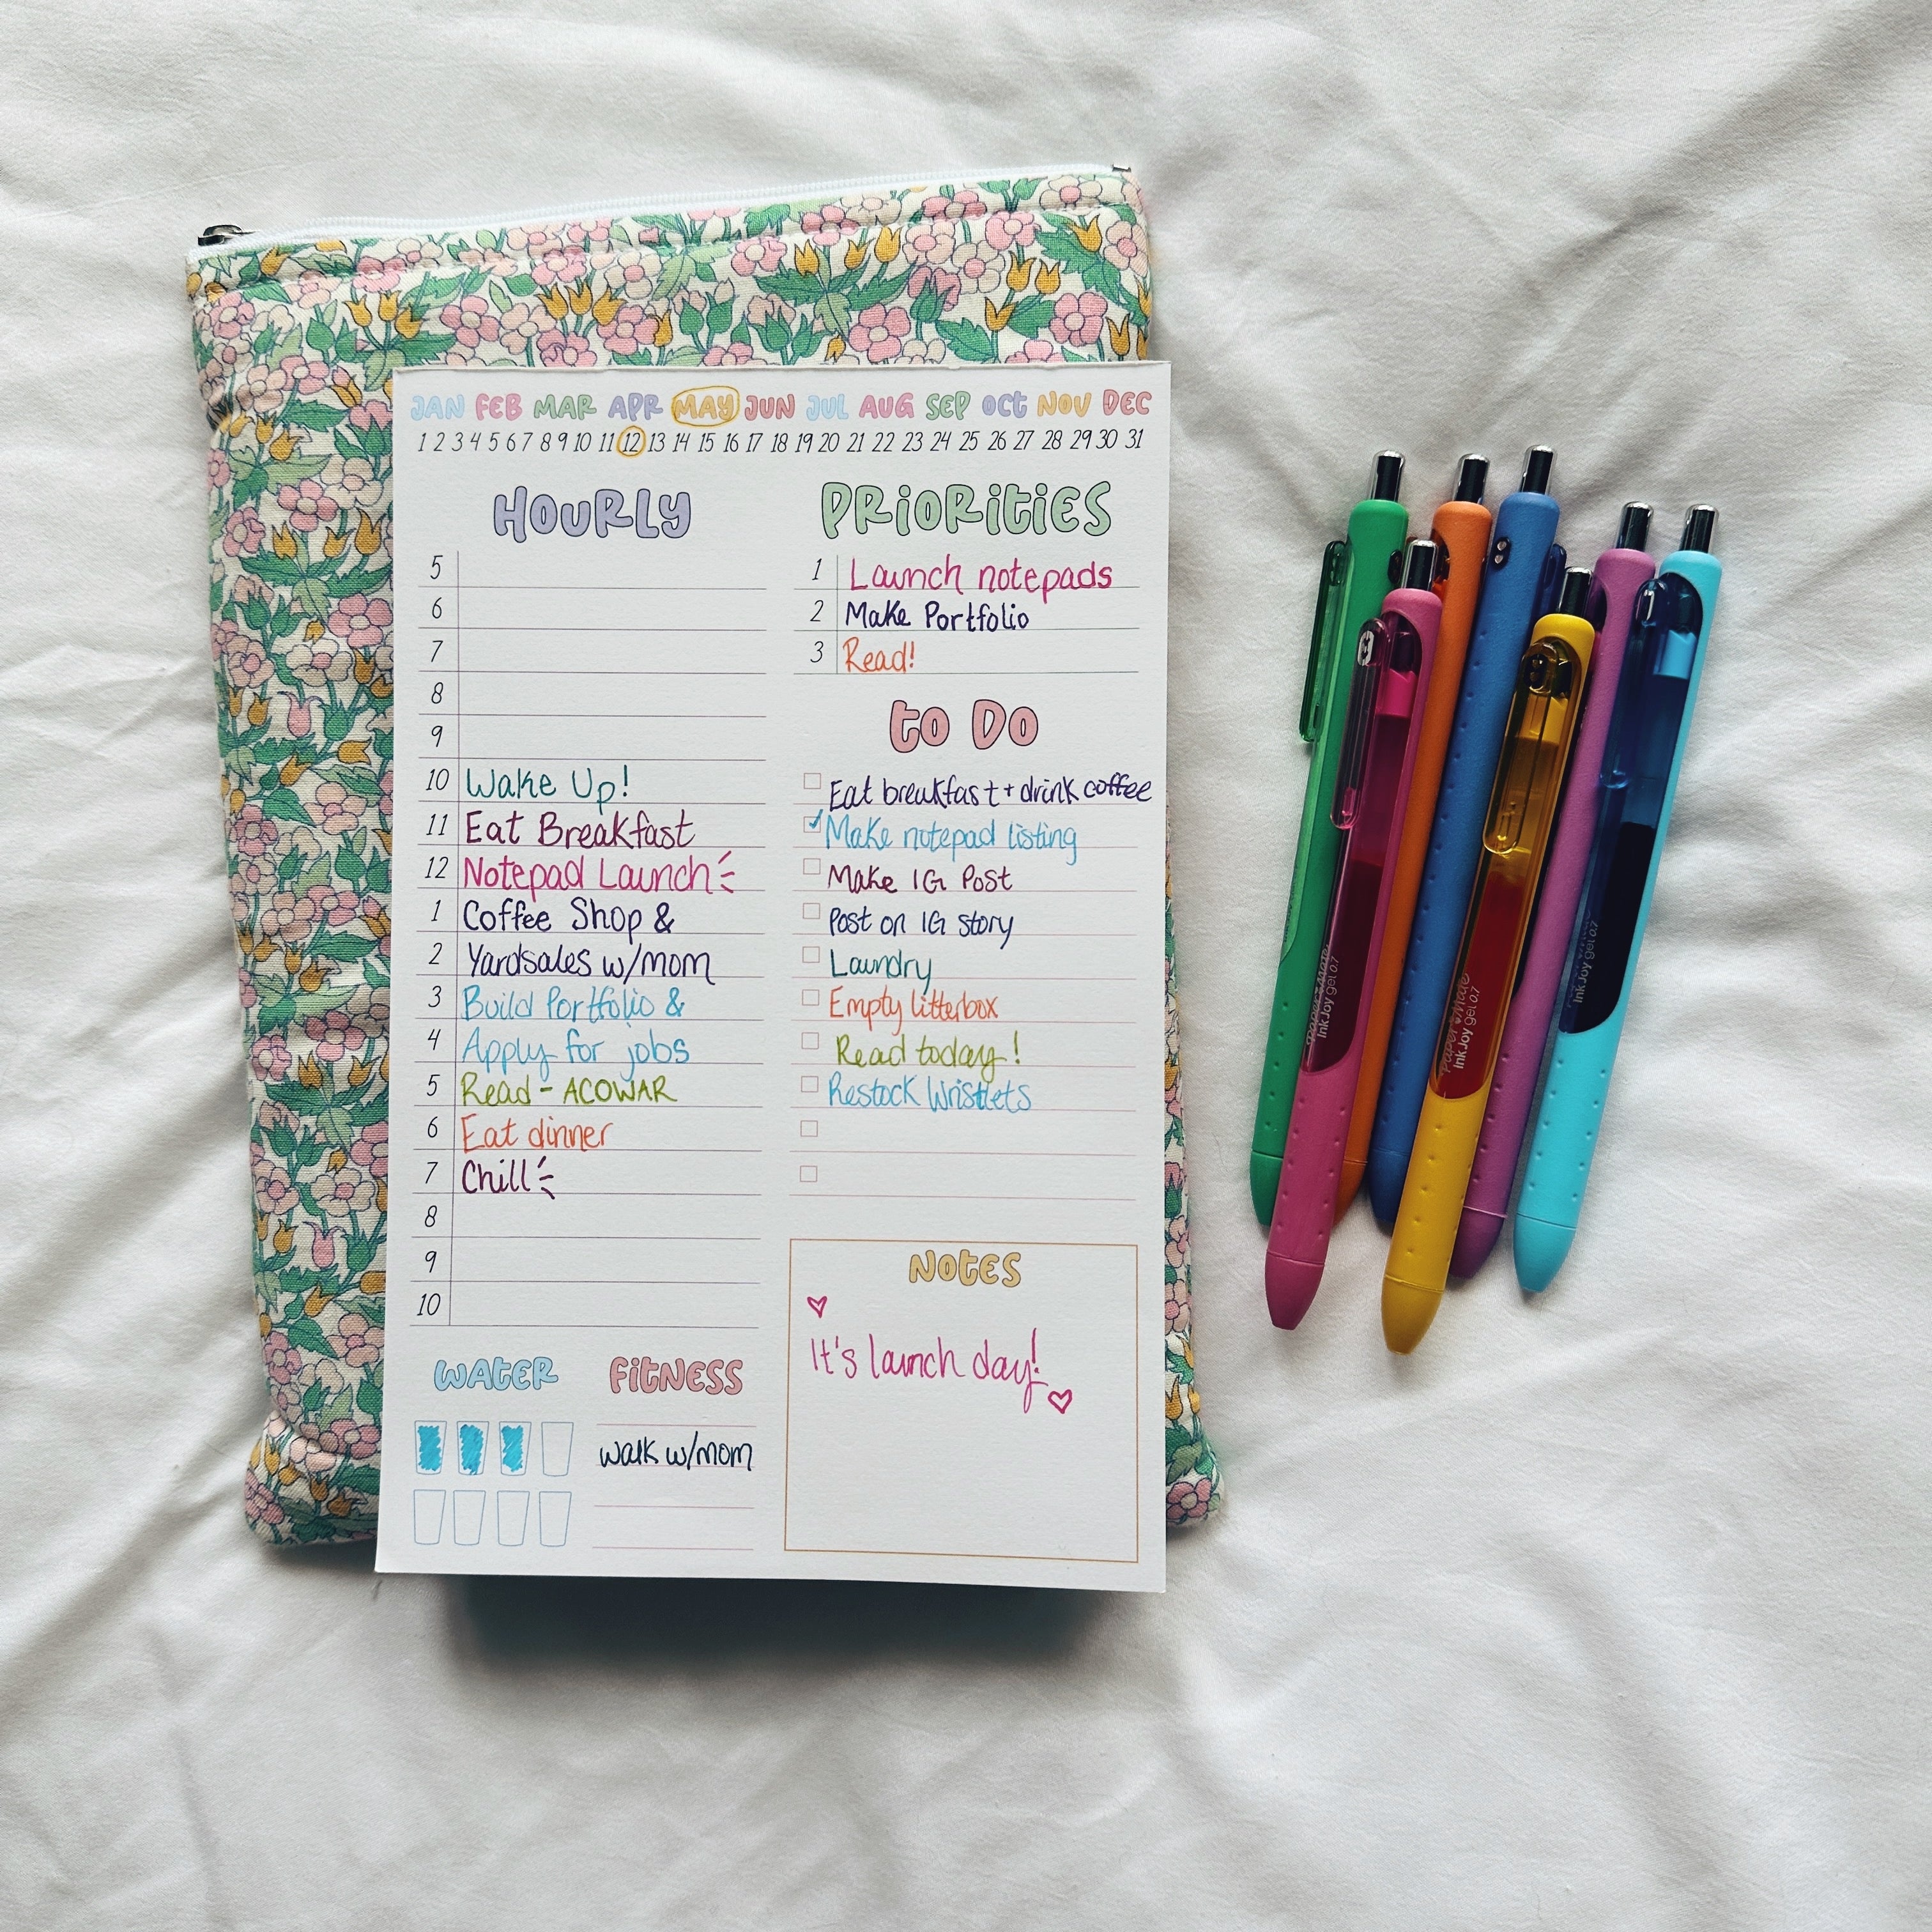 JAN FEB MAR APR MAY JUN JUL AUG SEP OCT NOV DEC
1 2 3 4 5 6 7 8 9 10 11 12 13 14 15 16 17 18 19 20 21 22 23 24 25 26 27 28 29 30 31
HOURLY
5
6
7
8
9
10 Wake Up!
11 Eat Breakfast
12 Notepad Launch
1 Coffee Shop &
2 Yardsales w/mom
3 Build Portfolio &
4 Apply for jobs
5 Read - ACOWAR
6 Eat dinner
7 Chill
8
9
10
PRIORITIES
1 Launch notepads
2 Make Portfolio
3 Read!
to Do
Eat breakfast + drink coffee
Make notepad listing
Make IG Post
Post on IG story
Laundry
Empty litterbox
Read today!
Restock Wristlets
WATER
FITNESS
walk w/mom
NOTES
It's launch day!
Paper Mate
InkJoy gel 0.7
Paper Mate
InkJoy gel 0.7
InkJoy gel 0.7